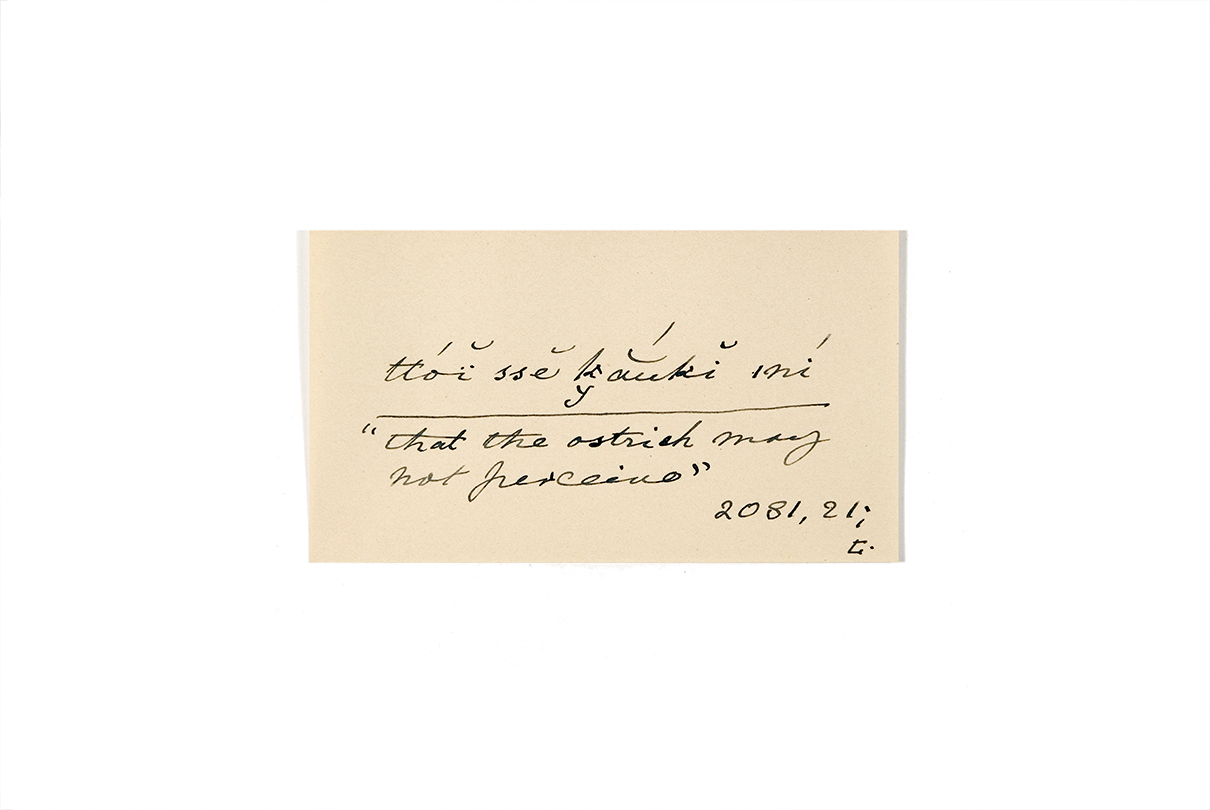 ttóĭ ssĕ k̮ắukĭ ıní
"that the ostrich may
not perceive"
2081, 21;
L.